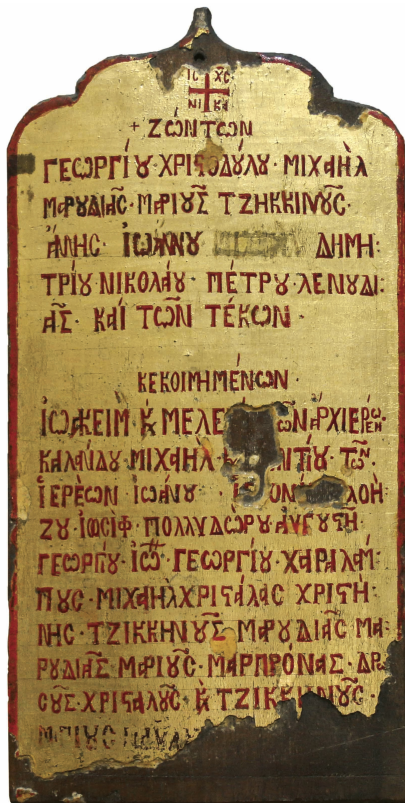 ΙC XC
ΝΙ ΚΑ
+ ΖΏΝΤΩΝ
ΓΕΩΡΓΊȢ · ΧΡΙϚΟΔȢ́ΛȢ · ΜΙΧΑΉΛ
ΜΑΡȢΔΙΑ͂C · ΜΑΡΙȢ͂C ΤΖΗΚΚΙΝȢ͂C ·
ἌΝΗC · ἸΩΆΝΝȢ ΔΗΜΗ:
ΤΡΊȢ ΝΙΚΟΛΆȢ · ΠΈΤΡȢ · ΛΕΝȢΔΙ:
Α͂C · ΚΑῚ ΤΩ͂Ν ΤΈΚΩΝ ·
ΚΕΚΟΙΜΗΜΈΝΩΝ ·
ἸΩΑΚΕΊΜ · Ϗ ΜΕΛΕ
ΚΑΛΑΎΔȢ · ΜΙΧΑΗΛ ΝΤΊȢ · ΤΩ͂Ν ·
ἹΕΡΈΩΝ ΙΩΆΝȢ · ΛΟΗ:
ΖȢ · ἸΩCῚΦ · ΠΟΛΛΥΔΏΡȢ ΑΥΓȢϚΗ͂ ·
ΓΕΩΡΓΊȢ · ἸΩ͂ · ΓΕΩΡΓΊȢ · ΧΑΡΑΛΑΜ:
ΠȢC · ΜΙΧΑΗΛ ΧΡΙϚΆΛΑC ΧΡΙϚΉ:
ΝΗC · ΤΖΙΚΚΗΝȢ͂C ΜΑΡȢΔΙΑ͂C ΜΑ:
ΡȢΔΙΑ͂C ΜΑΡΙȢ͂C · ΜΑΡΠΡΌΝΑC · ΔΡ
CȢ͂C · ΧΡΙϚΑΛȢ͂C · Ϗ ΤΖΙΚΚΗΝȢ͂C ·